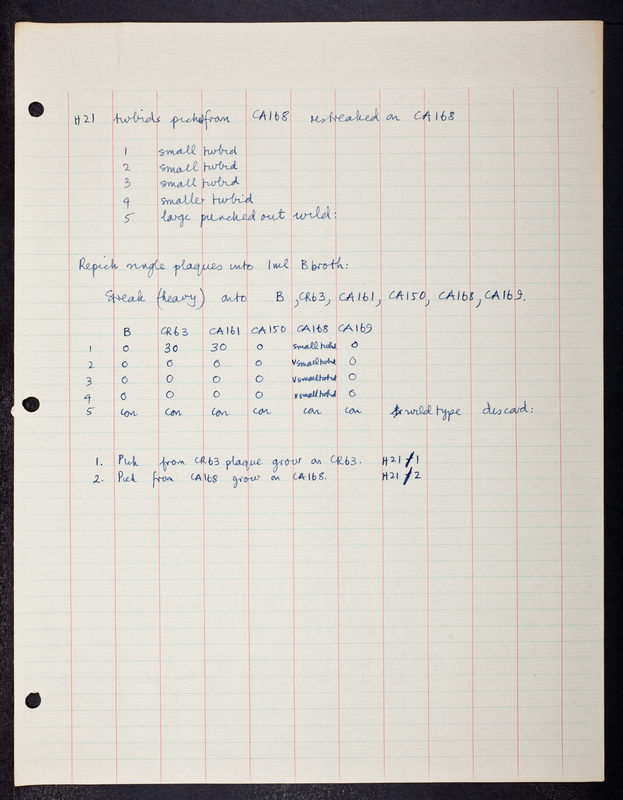 H21 turbids picked from CA168 restreaked on CA168
1 small turbid
2 small turbid
3 small turbid
4 smaller turbid
5 large punched out wild:
Repick single plaques into 1ml B broth:
Streak (heavy) onto B, CR63, CA161, CA150, CA168, CA169.
B CR63 CA161 CA150 CA168 CA169
1 0 30 30 0 small turbid 0
2 0 0 0 0 v small turbid 0
3 0 0 0 0 v small turbid 0
4 0 0 0 0 v small turbid 0
5 con con con con con con wild type discard:
1. Pick from CR63 plaque grow on CR63. H21/1
2. Pick from CA168 grow on CA168. H21/2